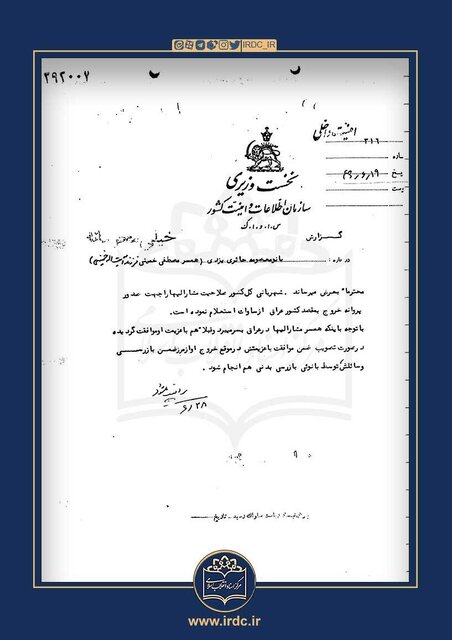 IRDC_IR
۳۹۲۰۰۷
امنیت داخلی
۳۱۶
نخست وزیری
سازمان اطلاعات و امنیت کشور
س.ا.و.ا.ک
گزارش
خیلی
درباره : بانو معصومه حائری یزدی (همسر مصطفی خمینی فرزند آیت اله خمینی)
محترما" بعرض میرساند . شهربانی کل کشور صلاحیت مشارالیها را جهت صدور
پروانه خروج بمقصد کشور عراق از ساواک استعلام نموده است .
با توجه باینکه همسر مشارالیها در عراق بسر میبرد و قبلا" هم با عزیمت او موافقت گردیده
در صورت تصویب ضمن موافقت با عزیمتش در موقع خروج او از مرز ضمن بازرسی
وسائلش توسط بانوئی بازرسی بدنی هم انجام شود .
۶/۲۸
مرکز اسناد انقلاب اسلامی
www.irdc.ir